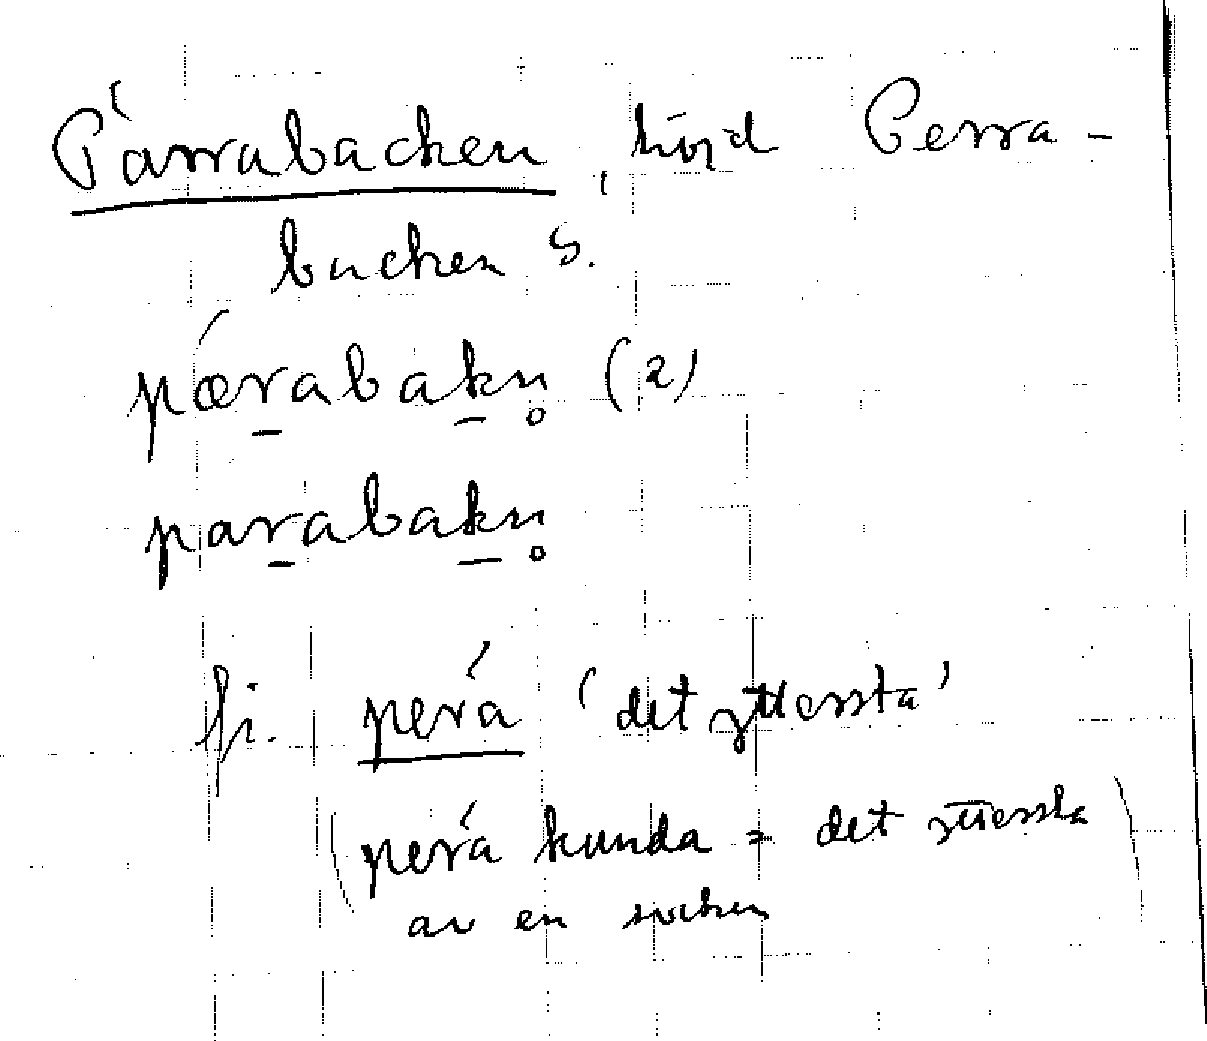 Pärrabacken, höjd Perra-
backen S.
pærabakn̥ (2)
parabakn̥
fi. perä 'det yttersta'
(perä kunda = det yttersta
av en socken)